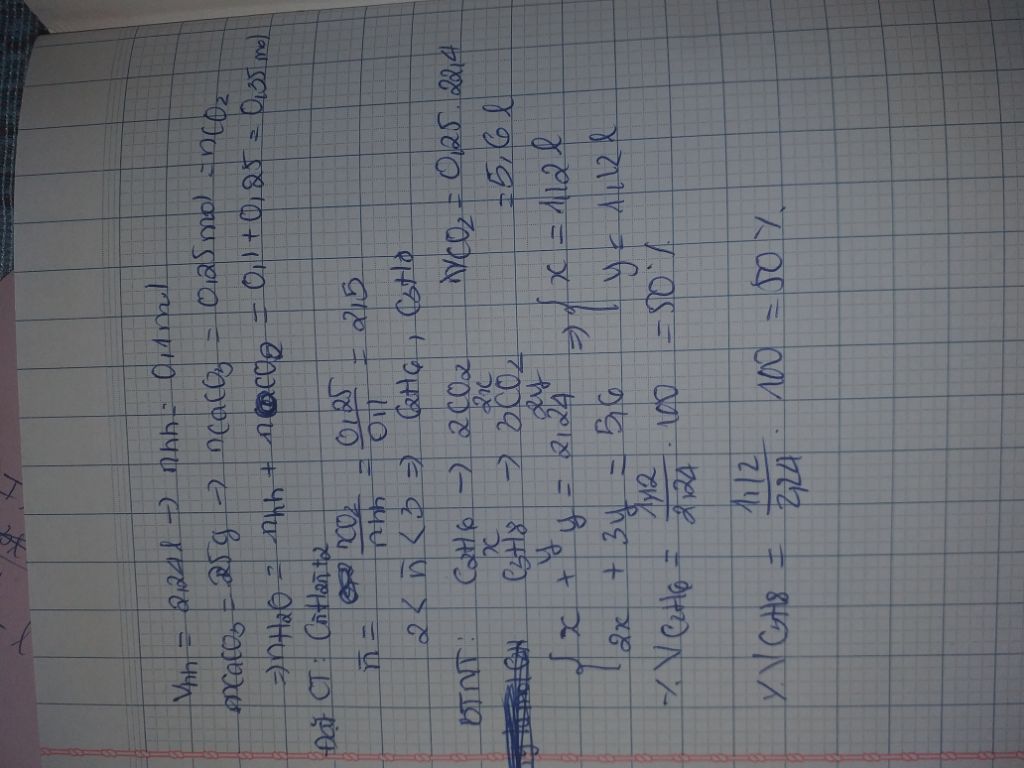 Vhh = 2,24l → nhh = 0,1 mol
mCaCO3 = 25g → nCaCO3 = 0,25 mol = nCO2
⇒ nH2O = nhh + nCO2 = 0,1 + 0,25 = 0,35 mol
Đặt CT: CnH2n+2
n̄ = nCO2/nhh = 0,25/0,1 = 2,5
2 < n̄ < 3 ⇒ C2H6, C3H8
BTNT: C2H6 → 2CO2 VCO2 = 0,25.22,4
x 2x
C3H8 → 3CO2 = 5,6 l
y 3y
{ x + y = 2,24 ⇒ { x = 1,12 l
2x + 3y = 5,6 y = 1,12 l
% V C2H6 = 1,12/2,24 . 100 = 50 %
% V C3H8 = 1,12/2,24 . 100 = 50 %